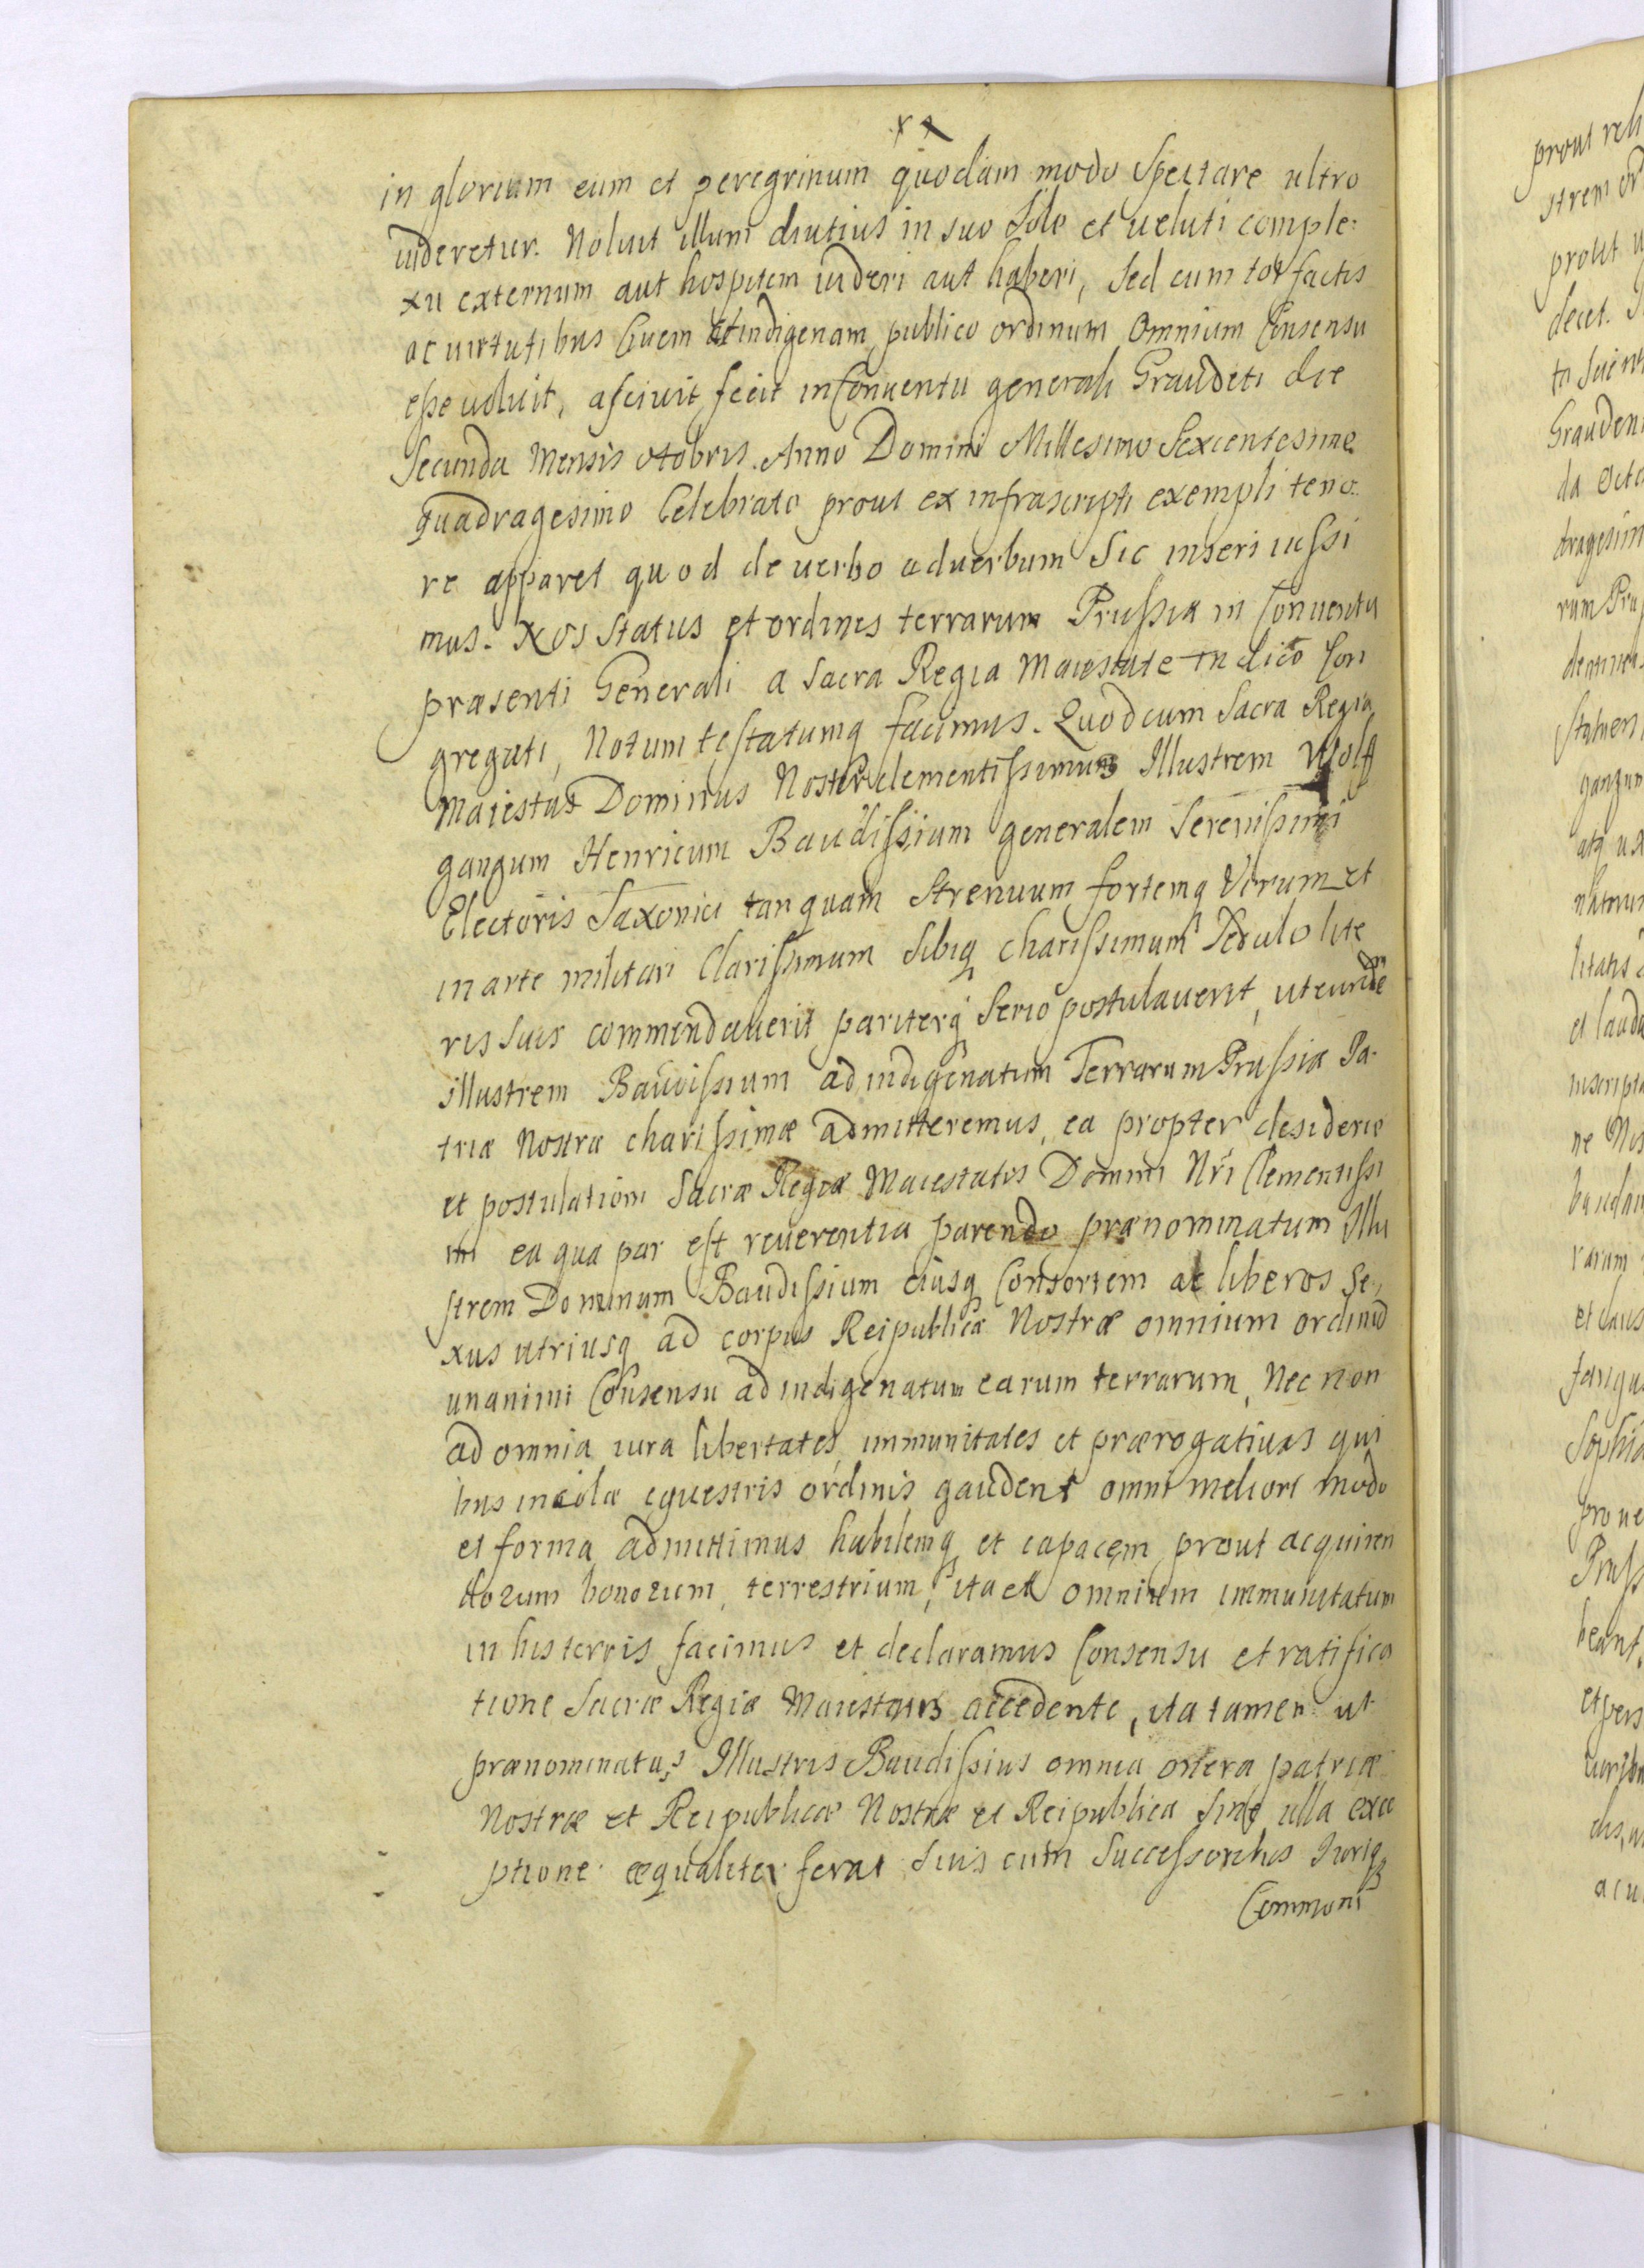 in gloriam eum et peregrinum quodam modo Spectare ultro
uideretur. Noluit illum diutius in suo Solo et ueluti comple:
xu externum aut hospitem uideri aut haberi, Sed eum tot factis
ac uirtutibus Ciuem et indigenam publico ordinum Omnium Consensu
esse uoluit, asciuit fecit in Conuentu generali Graudeti die
Secunda Mensis octobris. Anno Domini Millesimo Sexcentesimo
quadragesimo Celebrato prout ex infrascripti exempli teno
re apparet quod de uerbo aduerbum Sic inseri iussi
mus. Nos Status et ordines terrarum Prussiæ in Conuentu
præsenti Generali a Sacra Regia Maiestate indicto Con
gregati, Notum testatumq facimus. Quod cum Sacra Regia
Maiestas Dominus Noster clementissimus Illustrem Wolff
gangum Henricum Baudissium generalem Serenissimi
Electoris Saxonici tanquam Strenuum fortemq Virum et
in arte militari Clarissimum Sibiq charissimum Sedulo lite
ris suis commendauerit pariterq Serio postulauerit, ut eunde
illustrem Baudissium ad indigenatum Terrarum Prussiæ Pa-
triæ Nostræ charissimæ admitteremus, ea propter desiderio
et postulationi Sacræ Regiæ Maiestatis Domini Nri Clementissi
mi ea qua par est reuerentia parendo prænominatum Illu
strem Dominum Baudissium eiusq Consortem ac liberos Se,
xus utriusq ad corpus Reipublicæ Nostræ omnium ordinu
unanimi Consensu ad indigenatum earum terrarum, Nec non
ad omnia iura libertates, immunitates et prærogatiuas qui
bus incolæ equestris ordinis gaudent omni meliori modo
et forma admittimus habilemq et capacem prout acquiren
dorum bonorum, terrestrium, ita et omnium immunitatum
in his terris facimus et declaramus Consensu et ratifica
tione Sacræ Regiæ Maiestatis accedente, ita tamen ut
prænominatus Illustris Baudissius omnia onera patriæ
Nostræ et Reipublicæ Nostræ et Reipublicæ Sine ulla exce
ptione æqualiter ferat Suis cum Successoribus Iuriq
Communi